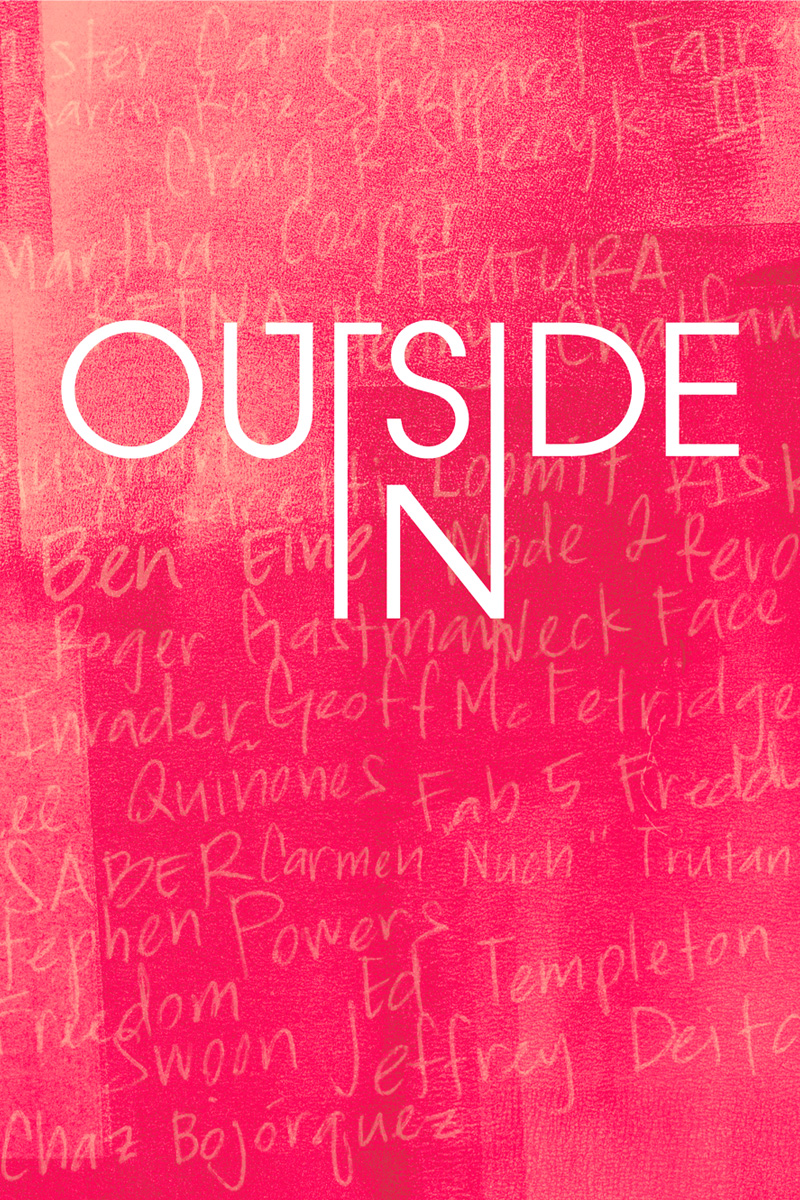 ister Cartoon
Shepard Faire
Aaron Rose
Craig R Stecyk III
Martha Cooper
FUTURA
RETNA Henry Chalfan
OUTSIDE
IN
Loomit RISK
Ben Eine Mode 2 Revo
Roger Gastman Weck Face
Invader Geoff McFetridge
ee Quiñones Fab 5 Freddy
SABER Carmen Nuch" Trutan
tephen Powers
Ed Templeton
Freedom
Swoon Jeffrey Deitc
Chaz Bojórquez